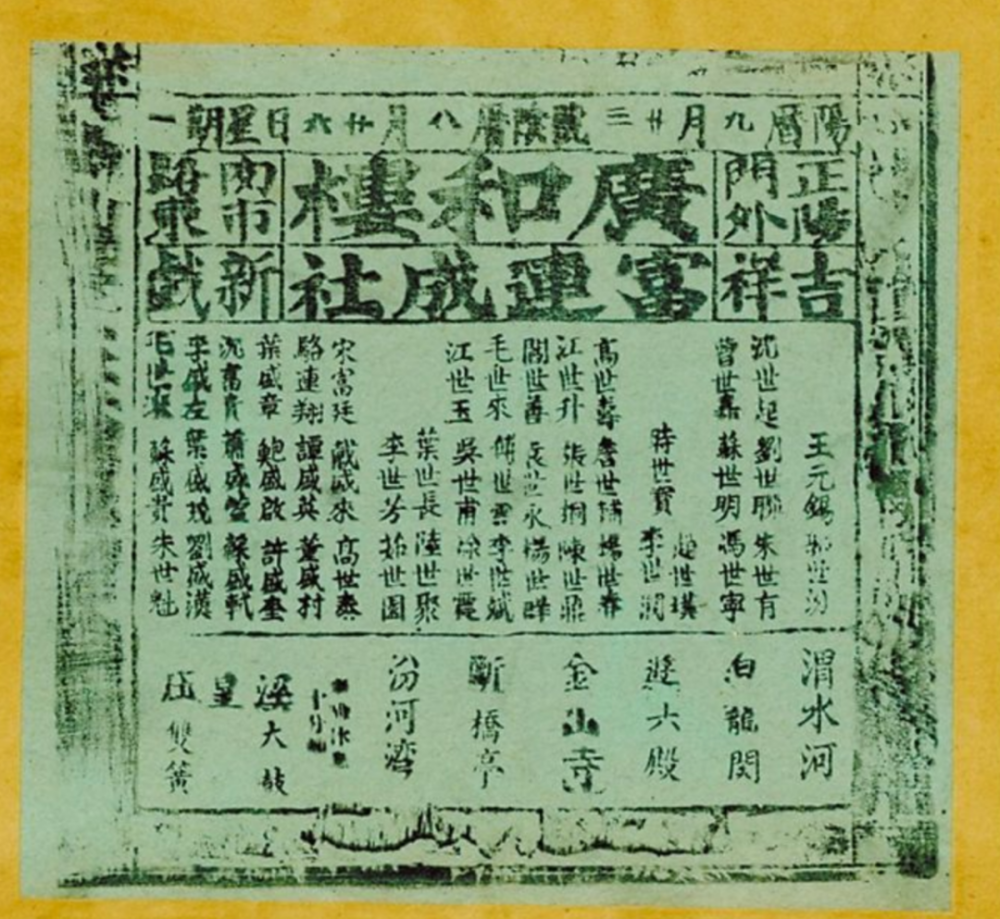 陽曆九月廿三號陰曆八月廿六日星期一
正陽門外
廣和樓
肉市路東
吉祥
富連成社
新戲
王元錫
沈世起 劉世聯 朱世有
曾世嘉 蘇世明 馮世寧
趙世璞
時世寶 李世潤
高世壽 詹世輔
江世升 張世桐 陳世鼎
閻世善 袁世永 楊世
毛世來 傅世雲 李世斌
江世玉 吳世甫 徐世霞
葉世長 陸世聚
李世芳 茹世圃
宋富廷 戴 來 高世泰
駱連翔 譚盛英 董盛村
葉盛章 鮑盛啟 許盛奎
沈富貴 蕭盛萱 蘇盛軾
李盛左 葉盛茂 劉盛漢
蘇盛貴 朱世魁
渭水河
白龍関
遊六殿
金山寺
斷橋亭
汾河灣
大
皇
雙簧